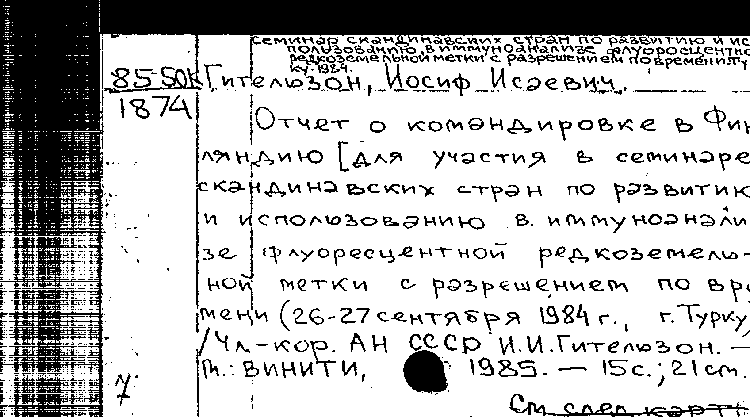 семинар скандинавских стран по развитию и ис
пользованию в иммуноанализе флуоресцентно
редкоземельной метки с разрешением по времени. Ту
ку. 1984.
85-50к Гительзон, Иосиф Исаевич.
1874
Отчет о командировке в Фин
ляндию [для участия в семинаре
скандинавских стран по развитию
и использованию в иммуноанали
зе флуоресцентной редкоземель-
ной метки с разрешением по вре
мени (26-27 сентября 1984 г., г. Турку
/Чл.-кор. АН СССР И.И. Гительзон. —
М.: ВИНИТИ, 1985. — 15 с.; 21 см.
7
См. след. карт